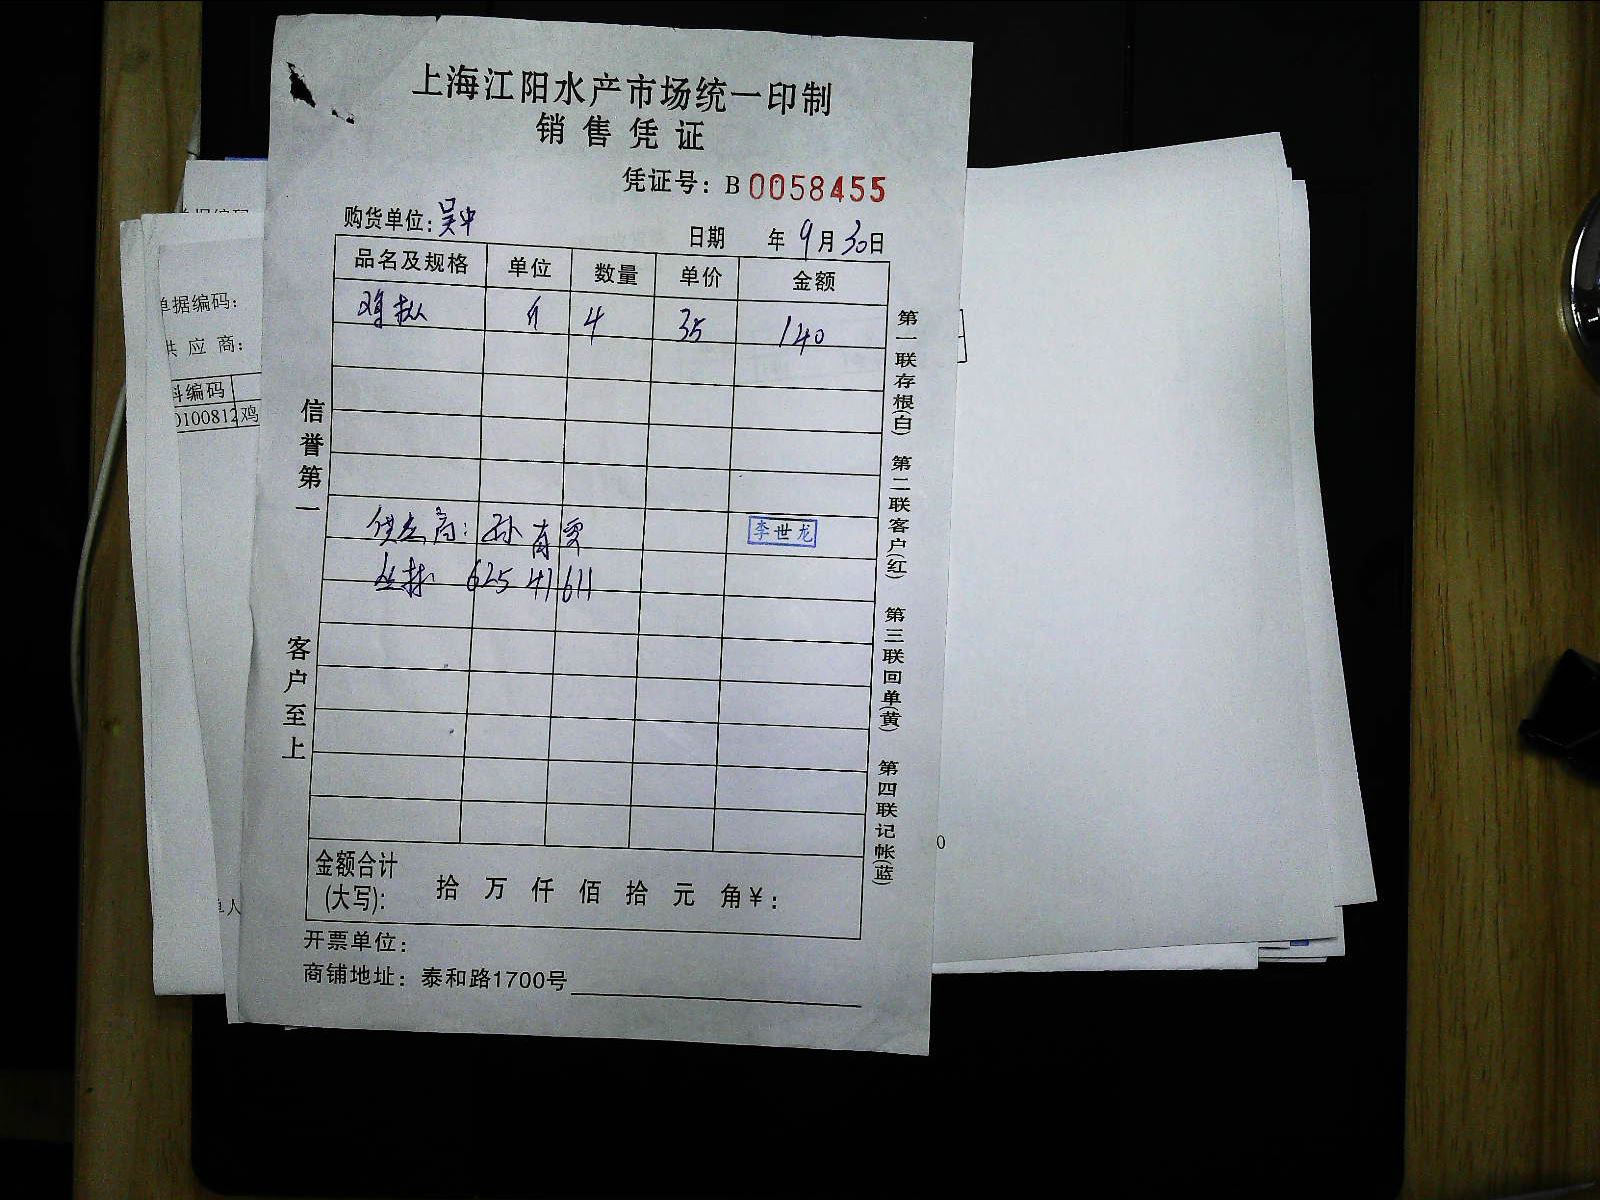 上海江阳水产市场统一印制
销售凭证
凭证号：B 0058455
购货单位：吴中
日期 年 9月30日
品名及规格 单位 数量 单价 金额
鸡枞 斤 4 35 140
供应商：孙
李世龙
丛林 62541611
金额合计
(大写)： 拾 万 仟 佰 拾 元 角 ¥：
开票单位：
商铺地址：泰和路1700号
信誉第一
客户至上
第一联存根(白) 第二联客户(红) 第三联回单(黄) 第四联记帐(蓝)
单据编码：
供应商：
料编码
0100812 鸡
单人
0